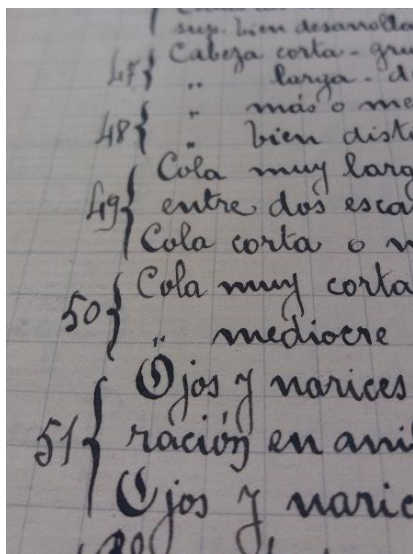 sup. bien desarrolla
47 { Cabeza corta - gru
" larga - d
48 { " más o me
" bien dist
49 { Cola muy larg
entre dos esca
Cola corta o m
50 { Cola muy corta
" mediocre
51 { Ojos y narices
ración en ani
Ojos y naric